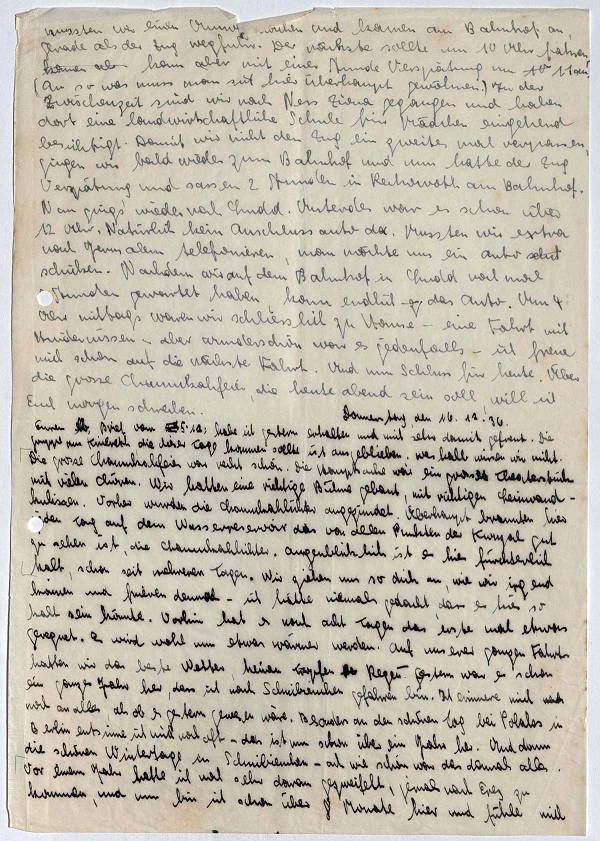 mussten wir einen machen und kamen am Bahnhof an,
gerade als der Zug wegfuhr. Der nächste sollte um 10 Uhr fahren
kam aber mit einer Stunde Verspätung um 11 an.
(An so was muss man sich hier überhaupt gewöhnen.) In der
Zwischenzeit sind wir nach Ness Ziona gegangen und haben
dort eine landwirtschaftliche Schule für Mädchen eingehend
besichtigt. Damit wir nicht den Zug ein zweites mal verpassen,
gingen wir bald wieder zum Bahnhof und nun hatte der Zug
Verspätung und sassen 2 Stunden in Rechowoth am Bahnhof.
Nun ging's wieder nach Ludd. Unterdes war es schon über
12 Uhr. Natürlich kein Anschlussauto da. Mussten wir extra
nach Jerusalem telefonieren, man möchte uns ein auto
schicken. Nachdem wir auf dem Bahnhof in Ludd noch mal
Stunden gewartet haben, kam endlich das Auto. Um 4
Uhr mittags waren wir schliesslich zu Hause – eine Fahrt mit
Hindernissen – aber wunderschön war es jedenfalls – ich freue
mich schon auf die nächste Fahrt. Und nun Schluss für heute. Über
die grosse Chanukkahfeier, die heute abend sein soll will ich
Euch morgen schreiben.
Donnerstag den 16.12.36.
Euren Brief vom 5.12. habe ich gestern erhalten und mich sehr damit gefreut. Die
die dieser Tage kommen sollte ist ausgeblieben. weshalb wissen wir nicht.
Die grosse Chanukkahfeier war recht schön. Die Hauptsache war ein grosses Theaterstück
mit vielen Chören. Wir hatten eine richtige Bühne gebaut, mit richtigen Leinwand-
kulissen. Vorher wurden die Chanukkahlichter angezündet. Überhaupt brannten hier
jeden Tag auf dem Wasserreservoir das von allen Punkten der Kwuzah gut
zu sehen ist, die Chanukkahlichter. Augenblicklich ist es hier fürchterlich
kalt, schon seit mehreren Tagen. Wir ziehen uns so dick an, wie wir irgend
können und frieren dennoch – ich hätte niemals gedacht dass es hier so
kalt sein könnte. Vorhin hat es nach acht Tagen das erste mal etwas
geregnet. Es wird wohl nun etwas wärmer werden. Auf unserer ganzen Fahrt
hatten wir das beste Wetter, keinen Tropfen Regen. Gestern war es schon
ein ganzes Jahr her dass ich nach Schniebinchen gefahren bin. Ich erinnere mich
noch an alles als ob es gestern gewesen wäre. Besonders an den schönen Tag bei in
Berlin entsinne ich mich noch oft – das ist nun schon über ein Jahr her. Und dann
die schönen Wintertage in Schniebinchen – ach wie schön war das damals alles.
Vor einem Jahr hatte ich noch sehr daran gezweifelt, jemals nach Erez zu
kommen, und nun bin ich schon über 8 Monate hier und fühle mich